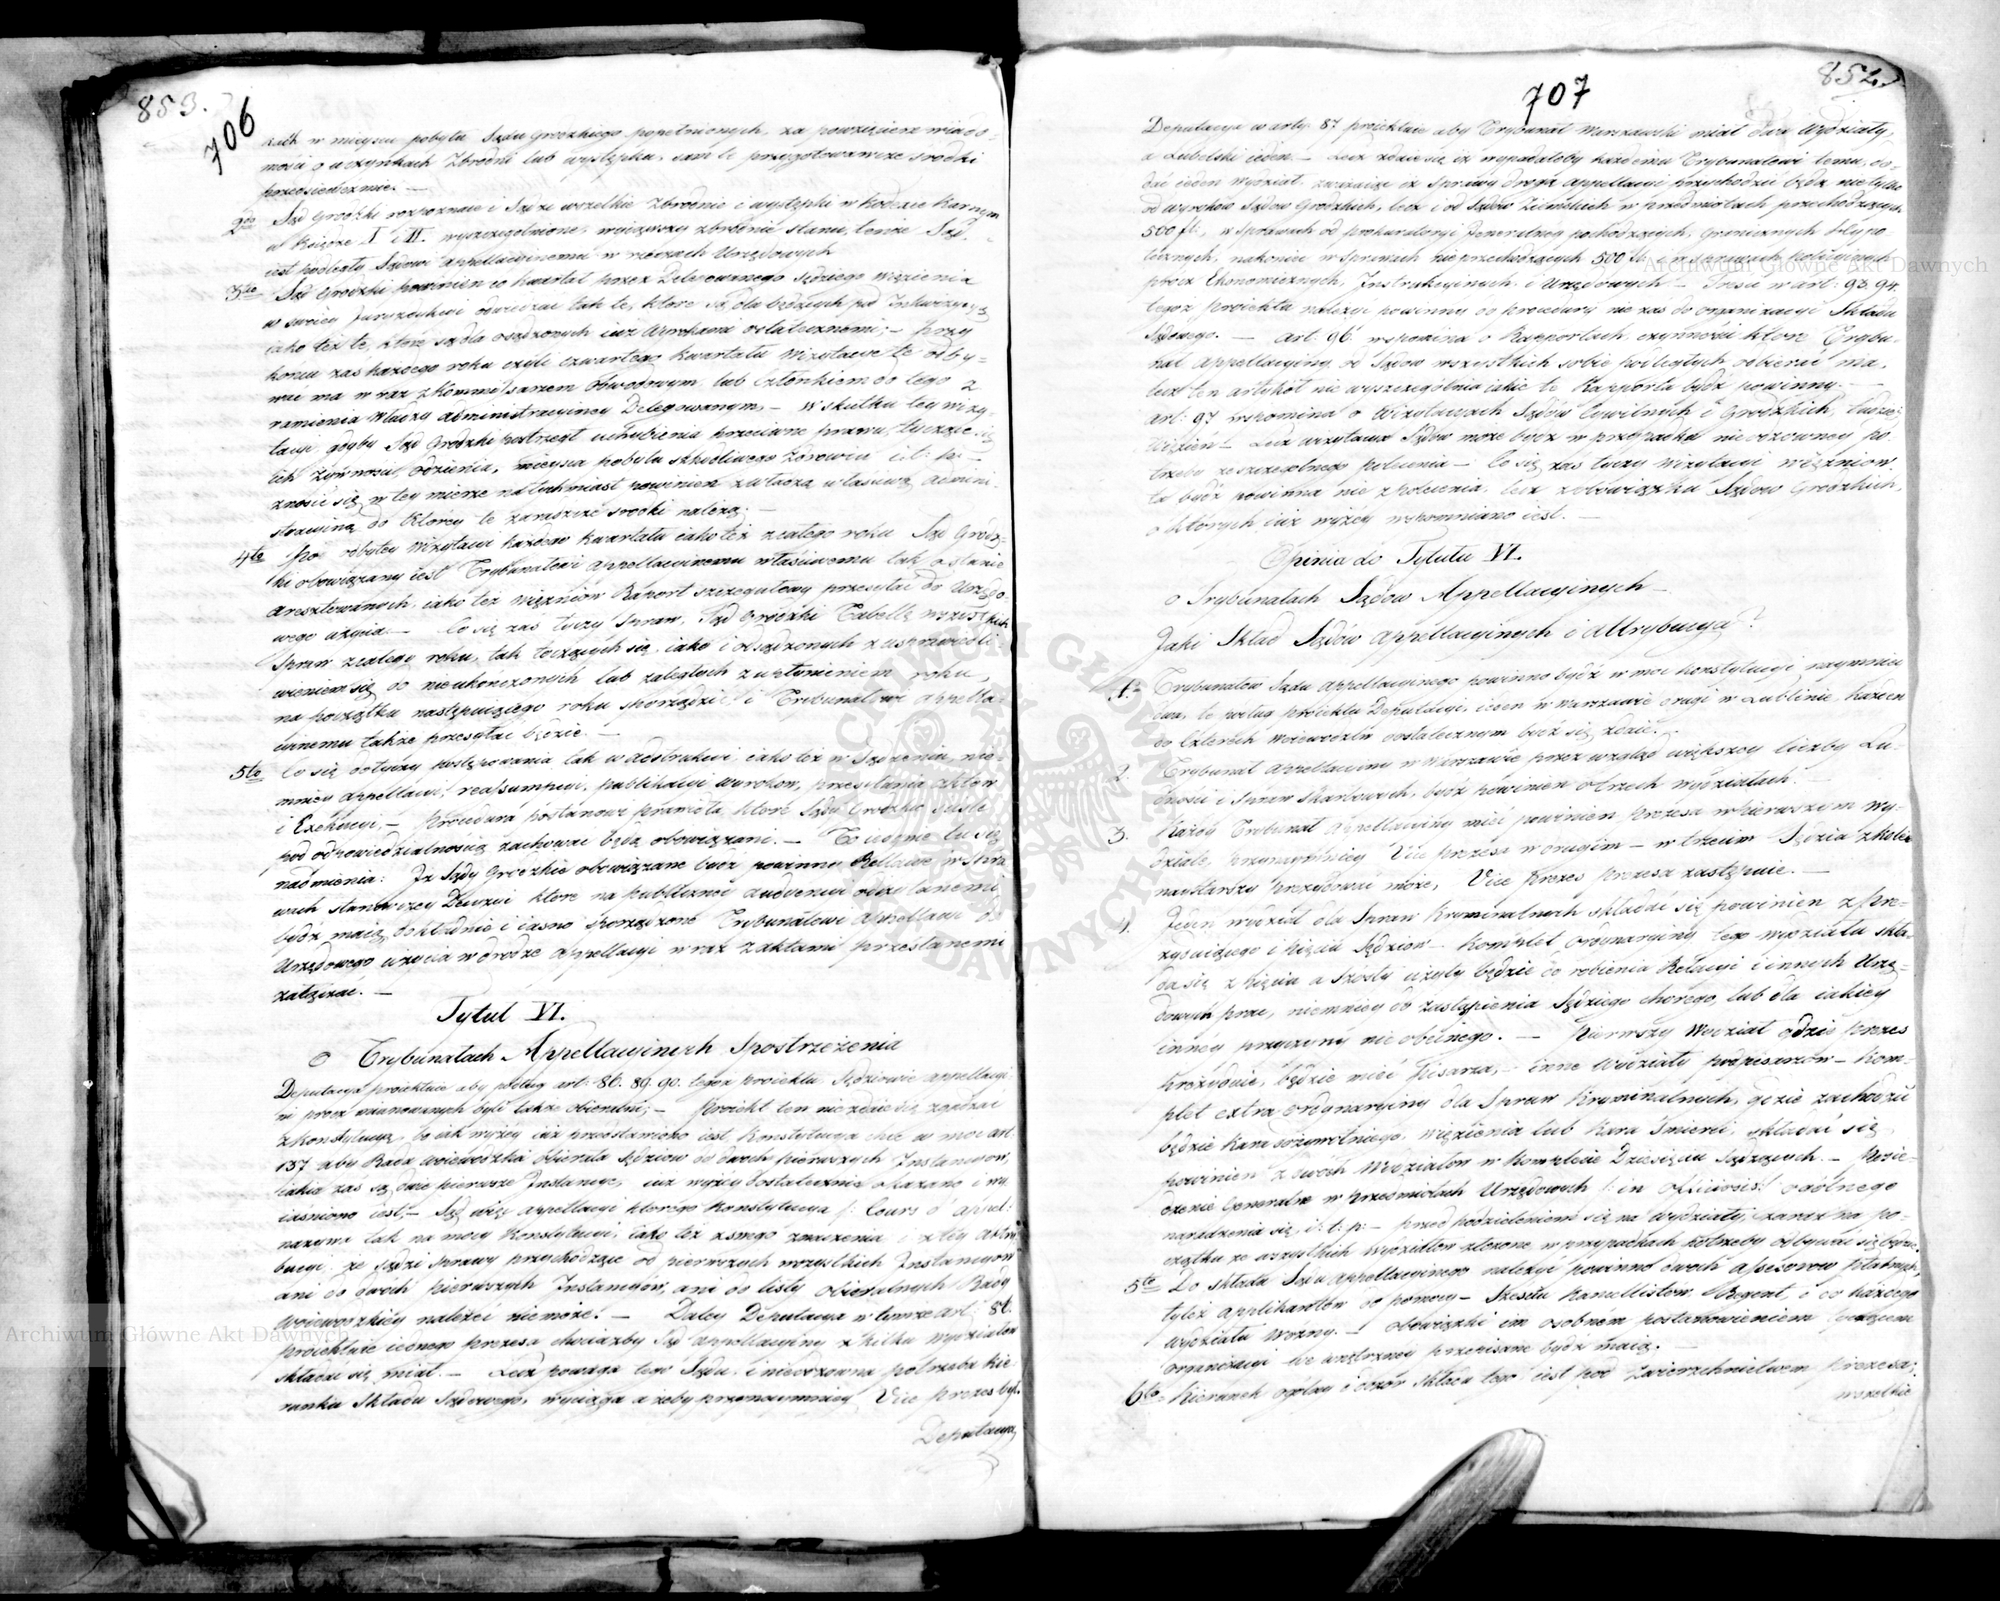 853.
706
kach w mieyscu pobytu Sądu Grodzkiego popełnionych, za powzięciem wiado-
mości o uczynkach Zbrodni lub występku, sam te przygotowawcze srodki
przedsiewezmie. —
2do Sąd Grodzki rozpoznaie i Sądzi wszelkie Zbrodnie i występki w Kodexie Karnym
w Księdze I i II. wyszczególnione, wyiąwszy zbrodnie stanu, tenże Sąd
iest podległy Sądowi appellacyinemu w rzeczach Urzędowych
3tio Sąd Grodzki powinien co kwartał przez Delegowanego Sędziego więzienia
w swoiey Juryzdykcyi odwiedzać tak te, które są dla będących pod Inkwizycyą
iako też te, które są dla osądzonych iuż wyrokami ostatecznemi; — przy
końcu zaś każdego roku czyli czwartego kwartału wizytacye te odby-
wać ma wraz z Kommissarzem Obwodowym, lub Członkiem do tego z
ramienia Władzy administracyiney Delegowanym. — W skutku tey wizy-
tacyi gdyby Sąd Grodzki postrzegł uchybienia przeciwne prawu, tyczące się
ich żywności, odzienia, mieysca pobytu szkodliwego zdrowiu
znosić się w tey mierze natychmiast powinien z władzą właściwą admini-
stracyiną do którey te zaradzić srodki należą. —
4to Po odbytey wizytacyi każdego kwartału iako też z całego roku Sąd Grodz-
ki obowiązany iest Trybunałowi appellacyinemu właściwemu tak o stanie
aresztowanych, iako też więzniów Raport szczegułowy przesyłać do Urzędo-
wego użycia. — Co się zaś tyczy Spraw, Sąd Grodzki Tabellę wszystkich
Spraw z całego roku, tak toczących się, iako i osądzonych z usprawiedli-
wieniem się do nieukończonych lub zaległych z upłynieniem roku,
na początku następuiącego roku sporządzi i Trybunałowi appella-
cyinemu także przesyłać będzie. —
5to Co się dotyczy postępowania tak w Instrukcyi, iako też w Sądzeniu, nie-
mniey appellacyi, reassumpcyi, publikacyi wyroków, przesyłania aktów
i Exekucyi, — Procedura postanowi prawidła, które Sądy Grodzkie ściśle
pod odpowiedzialnością zachować będą obowiązani. — To iedynie tu się
nadmienia: Iż Sądy Grodzkie obowiązane bydź powinny Rellacye w Spra-
wach stanowczey Decyzyi które na publiczney audyencyi odczytanemi
bydź maią, dokładnie i iasno sporządzone Trybunałowi appellacyi do
Urzędowego użycia w drodze appellacyi wraz z aktami przesłanemi
załączać. —
Tytuł VI.
O Trybunałach Appellacyinych Spostrzeżenia
Deputacya proiektuie aby podług art: 86. 89. 90. tegoż proiektu Sędziowie appellacyi-
ni przez mianowanych byli także obieralni; — Proiekt ten nie zdaie się zgadzać
z konstytucyą, bo iak wyżey iuż przedstawiono iest, Konstytucya chce w moc art.
137 aby Rada woiewódzka obierała Sędziów do dwóch pierwszych Instancyów,
iakie zaś są dwie pierwsze Instancye, iuż wyżey dostatecznie okazano i wy-
iaśniono iest; — Sąd więc appellacyi którego Konstytucya /: Cours d'appel:
nazywa tak na mocy Konstytucyi, iako też z samego znaczenia i z tey attry-
bucyi, że sądzi sprawy przychodzące od pierwszych wszystkich Instancyów
ani do dwóch pierwszych Instancyów, ani do listy obieralnych Rady
woiewódzkiey należeć nie może. — Daley Deputacya w tymże art: 86.
proiektuie iednego prezesa chociażby Sąd appellacyiny z kilku wydziałów
składać się miał. — Lecz powaga tego Sądu, i nieodzowna potrzeba kie-
runku Składu Sądowego, wyciąga ażeby przynaymniey Vice prezes był.
Deputacya
852.
707
Deputacya w arty: 87 proiektuie aby Trybunał Warszawski miał dwa wydziały,
a Lubelski ieden. — Lecz zdaie się iż wypadałoby każdemu Trybunałowi temu do-
dać ieden wydział, zważaiąc iż Sprawy drogą appellacyi przychodzić będą nie tylko
od wyroków Sądów Grodzkich, lecz i od Sądów Ziemskich w przedmiotach przechodzących
500 fl:, w Sprawach od prokuratoryi Jeneralney pochodzących, Granicznych Hypo-
tecznych, nakoniec w Sprawach nie przechodzących 500 fl: i w Sprawach policyinych
prócz Ekonomicznych, Instrukcyinych i Urzędowych. — Treść w art: 93. 94.
tegoż proiektu należeć powinny do procedury nie zaś do organizacyi Składu
Sądowego. — Art: 96. wspomina o Rapportach, czynności które Trybu-
nał appellacyiny od Sądów wszystkich sobie podległych odbierać ma,
lecz ten artykuł nie wyszczególnia iakie te Rapporta bydź powinny. —
Art: 97 wspomina o Wizytacyach Sądów Cywilnych i Grodzkich, tudzież
Więzień. — Lecz wizytacya Sądów może bydź w przypadku nieodzowney po-
trzeby ze szczególnego polecenia — Co się zaś tyczy wizytacyi więzniów
ta bydź powinna nie z polecenia, lecz z obowiązku Sądów Grodzkich,
o których iuż wyżey wspomniano iest. —
Opinia do Tytułu VI.
o Trybunałach Sądów Appellacyinych —
Jaki Skład Sądów appellacyinych i attrybucya?
1. Trybunałów Sądu appellacyinego powinno bydź w moc konstytucyi naymniey
dwa, te podług proiektu Deputacyi, ieden w Warszawie drugi w Lublinie, każden
do Czterech Woiewództw dostatecznym bydź się zdaie.
2. Trybunał appellacyiny w Warszawie przez wzgląd większey liczby Lu-
dności i Spraw Skarbowych, bydź powinien o trzech wydziałach. —
3. Każdy Trybunał appellacyiny mieć powinien Prezesa w pierwszym wy-
dziale, przynaymniey Vice prezesa w drugim — w trzecim Sędzia z kolei
naystarszy prezydować może, Vice Prezes Prezesa zastępuie. —
4. Jeden wydział dla Spraw Kryminalnych składać się powinien z Pre-
zyduiącego i Pięciu Sędziów — Komplet ordynaryiny tego wydziału skła-
da się z pięciu a Szósty użyty będzie do robienia Rellacyi i innych Urzę-
dowych prac, niemniey do zastąpienia Sędziego chorego, lub dla iakiey
inney przyczyny nieobecnego. — Pierwszy Wydział gdzie Prezes
Prezyduie, będzie mieć Pisarza, — inne Wydziały podpisarzów — Kom-
plet extra ordynaryiny dla Spraw Kryminalnych, gdzie zachodzić
będzie kara dożywotniego więzienia lub kara Śmierci, składać się
powinien z dwóch Wydziałów w Komplecie Dziesięciu Sądzących. — Posie-
dzenie Generalne w przedmiotach Urzędowych /: in Officiosis:/ ogólnego
naradzenia się, i: t: p: — przed podzieleniem się na Wydziały, zaraz na po-
czątku ze wszystkich Wydziałów złożone, w przypadkach potrzeby odbywać się będzie.
5to Do składu Sądu appellacyinego należyć powinno dwóch assesorów płatnych,
tyleż applikantów do pomocy — Sześciu Kancellistów, Regent, i do każdego
wydziału Wozny. — Obowiązki im osobnem postanowieniem względem
organizacyi we wnętrzney przepisane bydź maią. —
6to Kierunek ogólny i dozór składu tego iest pod Zwierzchnictwem Prezesa;
wszelkie